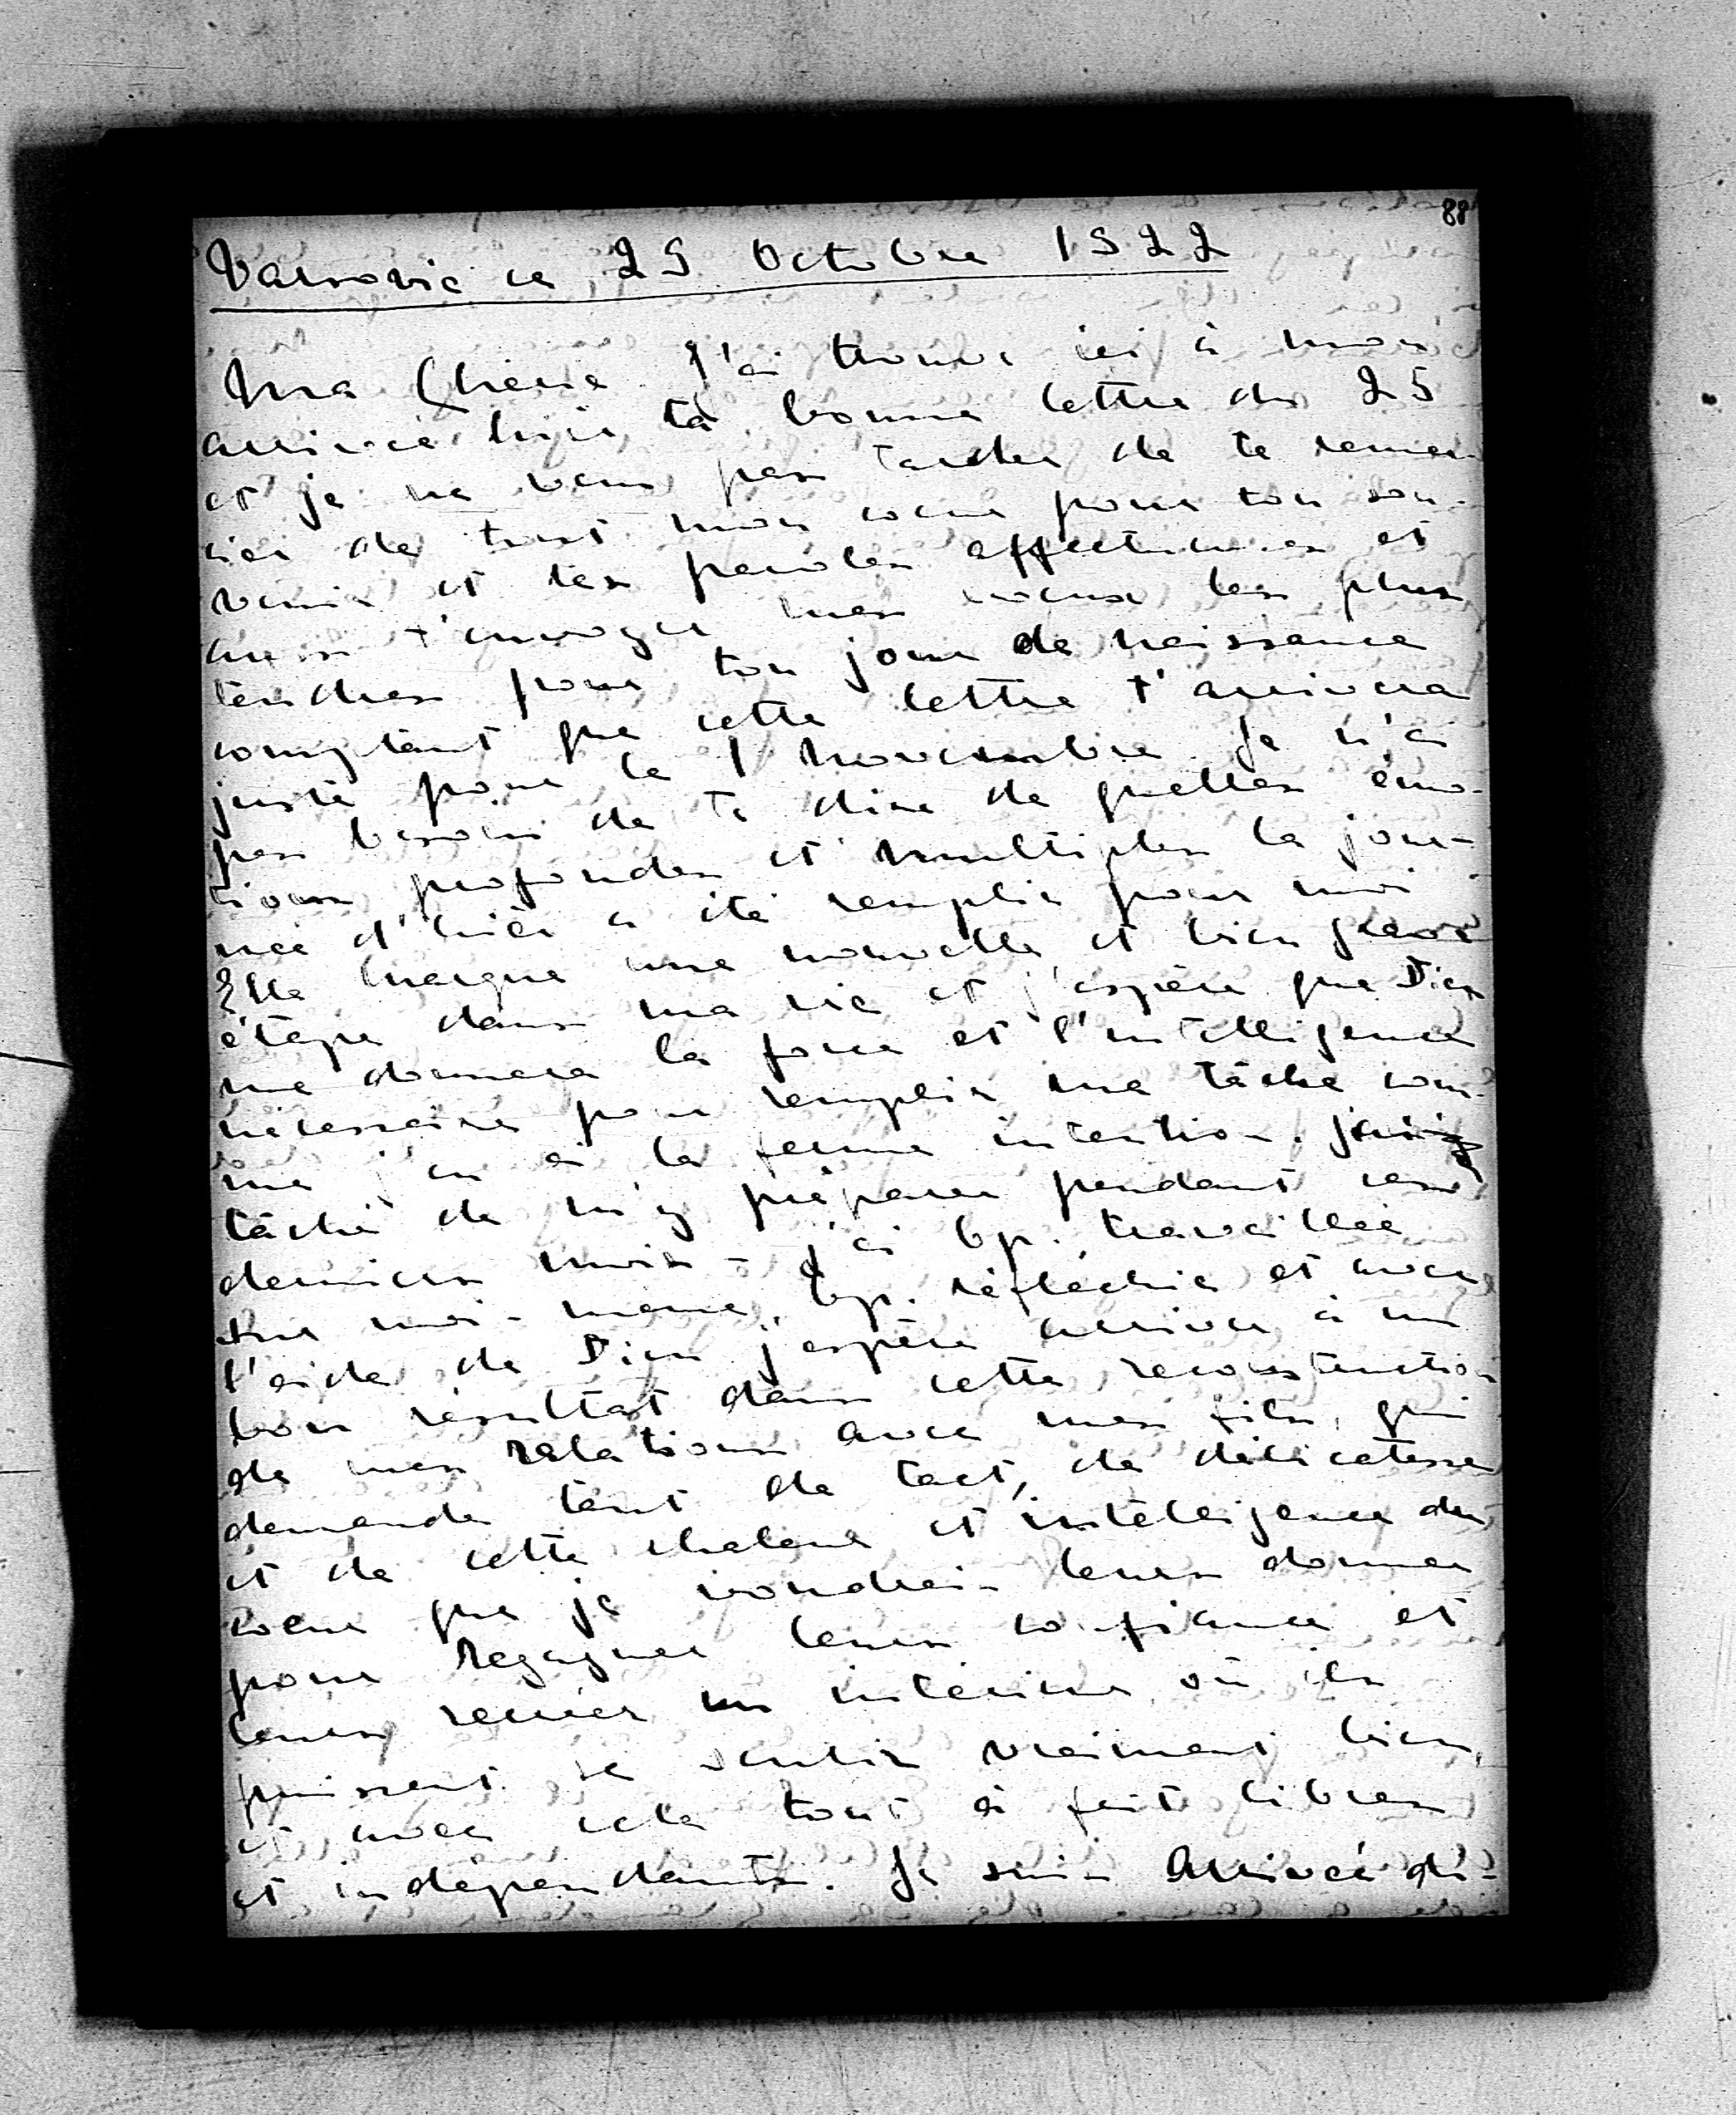 88
Varsovie ce 29 Octobre 1922
Ma Cherie J'ai trouvé ici à mon
arrivée hier ta bonne lettre du 25
et je ne veux pas tarder de te remer-
cier de tout mon coeur pour ton sou-
venir et tes paroles affectueuses et
aussi t'envoyer mes voeux les plus
tendres pour ton jour de naissance
comptant que cette lettre t'arrivera
juste pour le 1 Novembre. Je n'ai
pas besoin de te dire de quelles émo-
tions profondes et multiples la jour-
née d'hier a été remplie pour moi
Elle marque une nouvelle et bien grave
étape dans ma vie et j'espère que Dieu
me donnera la force et l'intelligence
nécessaire pour remplir ma tâche com-
me j'en ai la ferme intention.
tâché de m'y préparer pendant ces
derniers mois - j'ai bp. travaillée
sur moi-meme, bp. réfléchie et avec
l'aide de Dieu j'espère arriver à un
bon résultat dans cette reconstruction
de mes relations avec mes fils, qui
demande tant de tact, de délicatesse
et de cette chaleur et intelligence du
coeur que je voudrais leurs donner
pour regagner leurs confiance et
leurs recréer un intérieur où ils
puissent se sentir vraiment bien,
et avec cela tout à fait libres
et indépendants. Je suis arrivée di-